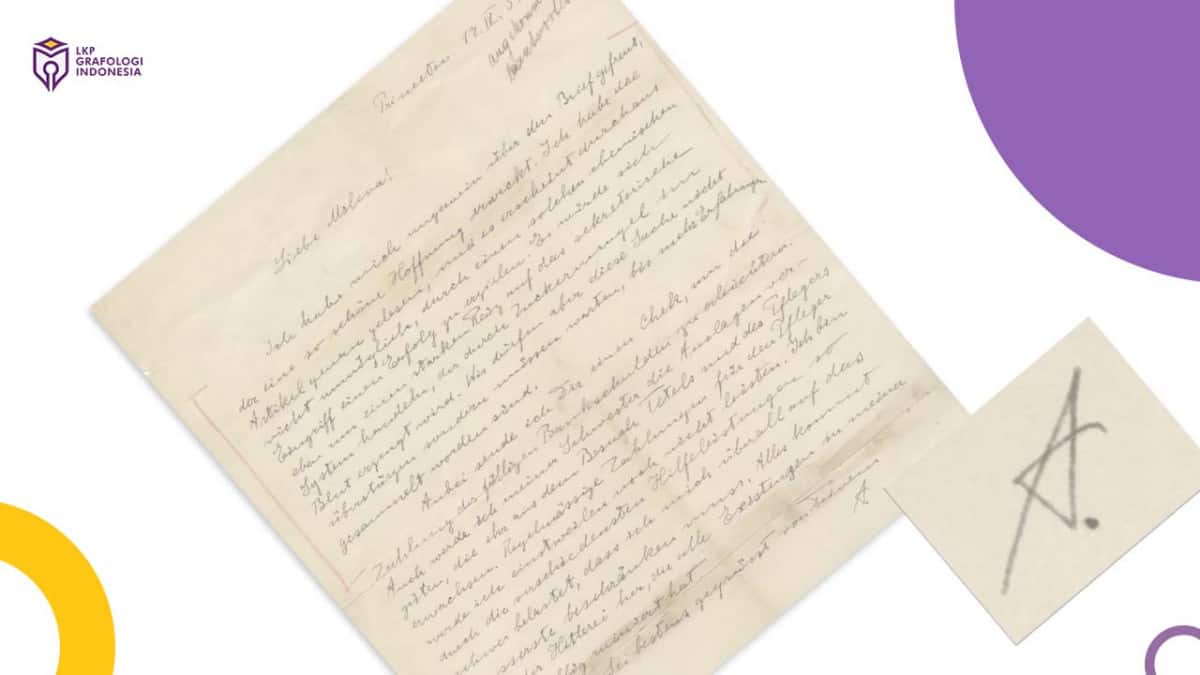 LKP
GRAFOLOGI
INDONESIA
Princeton 17. IX. 3
Liebe Mileva!
Ich habe mich ungemein über den Brief gefreut,
der eine so schöne Hoffnung erweckt. Ich habe die
Artikel genau gelesen, und es erscheint durchaus
nicht unmöglich, durch einen solchen chemischen
Eingriff einen Erfolg zu erzielen. Es würde sich
eben um einen starken Reiz auf das sekretorische
System handeln, der durch Zuckermangel im
Blut erzeugt wird. Wir dürfen aber diese Sache nicht
überstürzen sondern müssen warten, bis mehr Erfahrungen
gesammelt worden sind.
Anbei sende ich Dir einen Chek, um die
Zahlung der fälligen Bankschulden zu erleichtern.
Auch werde ich meiner Schwester die Auslagen ver-
güten, die ihr aus dem Besuch Tetels und des Pflegers
erwachsen. Regelmässige Zahlungen für den Pfleger
werde ich einstweilen noch nicht leisten. Ich bin
durch die verschiedensten Hilfeleistungen so
schwer belastet, dass ich mich überall auf das
sserste beschränken muss. Alles kommt
der Hitlerei her, die alle Existenzen in meiner
ruiniert hat
Sei bestens gegrüsst von Deinem
A.
A.